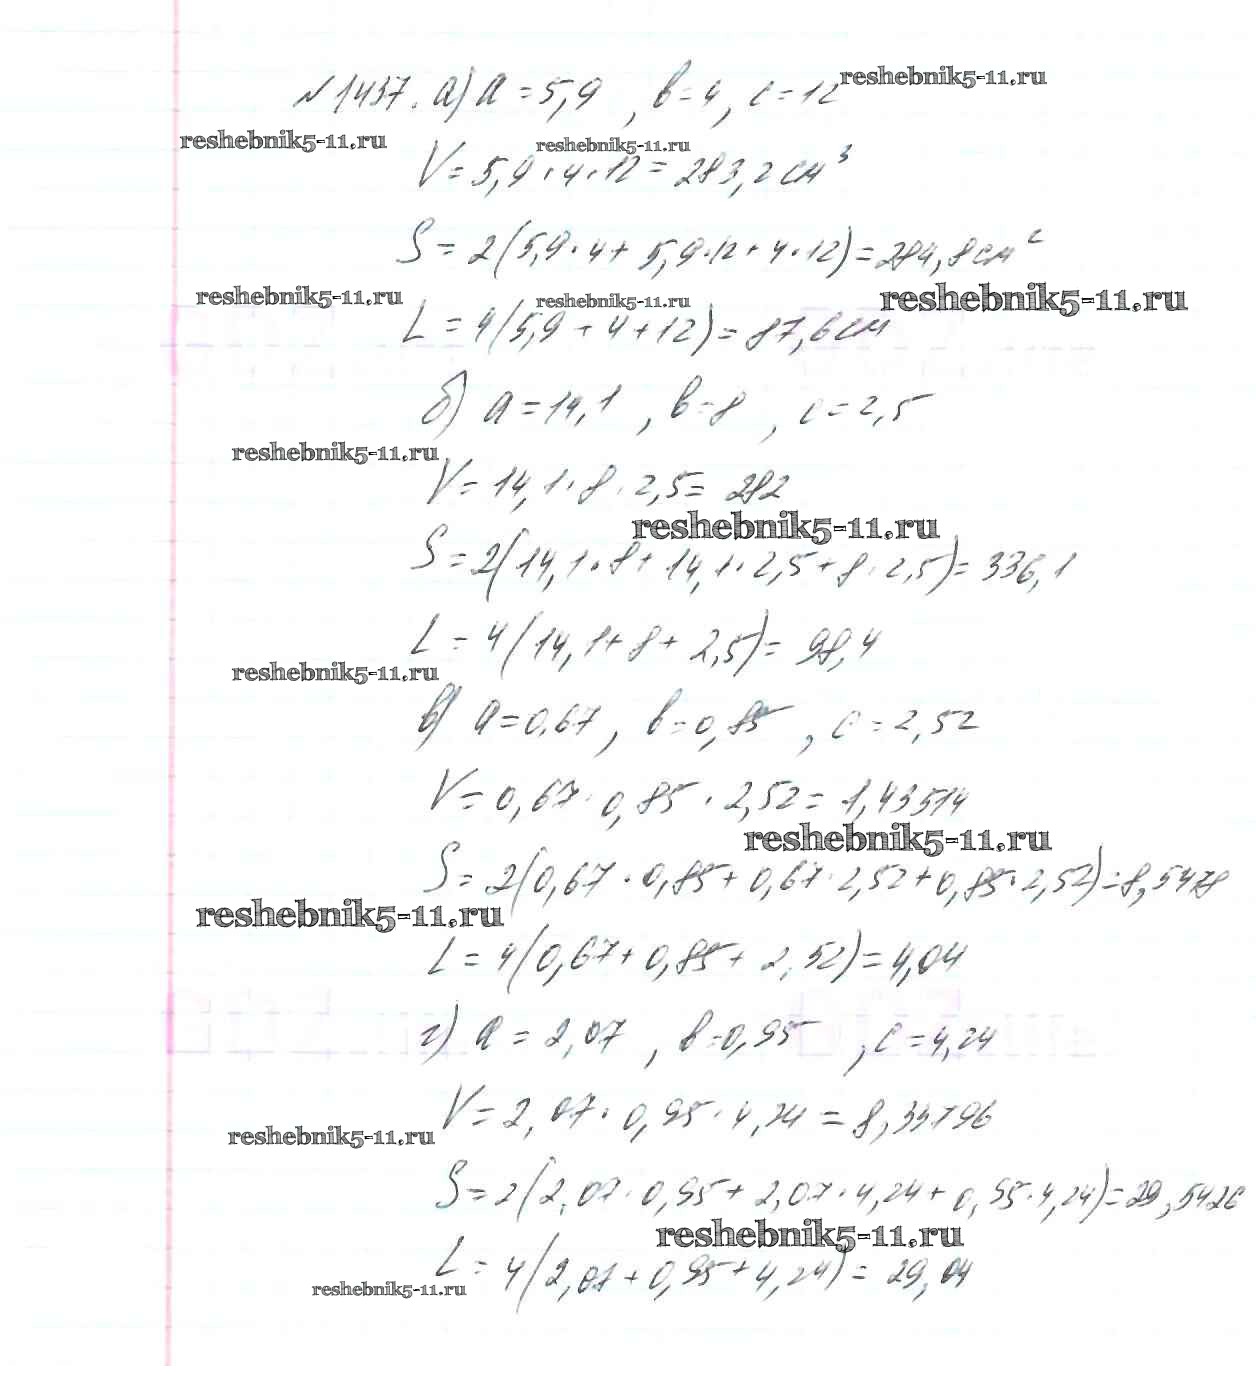 №1437. а) a = 5,9 , b = 4, c = 12 reshebnik5-11.ru
reshebnik5-11.ru reshebnik5-11.ru
V = 5,9 · 4 · 12 = 283,2 см³
S = 2(5,9 · 4 + 5,9 · 12 + 4 · 12) = 284,8 см²
reshebnik5-11.ru reshebnik5-11.ru reshebnik5-11.ru
L = 4(5,9 + 4 + 12) = 87,6 см
б) a = 14,1 , b = 8 , c = 2,5
reshebnik5-11.ru
V = 14,1 · 8 · 2,5 = 282
reshebnik5-11.ru
S = 2(14,1 · 8 + 14,1 · 2,5 + 8 · 2,5) = 336,1
L = 4(14,1 + 8 + 2,5) = 98,4
reshebnik5-11.ru
в) a = 0,67 , b = 0,85 , c = 2,52
V = 0,67 · 0,85 · 2,52 = 1,43514
reshebnik5-11.ru
S = 2(0,67 · 0,85 + 0,67 · 2,52 + 0,85 · 2,52) = 8,5478
reshebnik5-11.ru
L = 4(0,67 + 0,85 + 2,52) = 4,04
г) a = 2,07 , b = 0,95 , c = 4,24
V = 2,07 · 0,95 · 4,24 =
reshebnik5-11.ru
S = 2(2,07 · 0,95 + 2,07 · 4,24 + 0,95 · 4,24) = 29,5426
reshebnik5-11.ru
L = 4(2,07 + 0,95 + 4,24) = 29,04
reshebnik5-11.ru